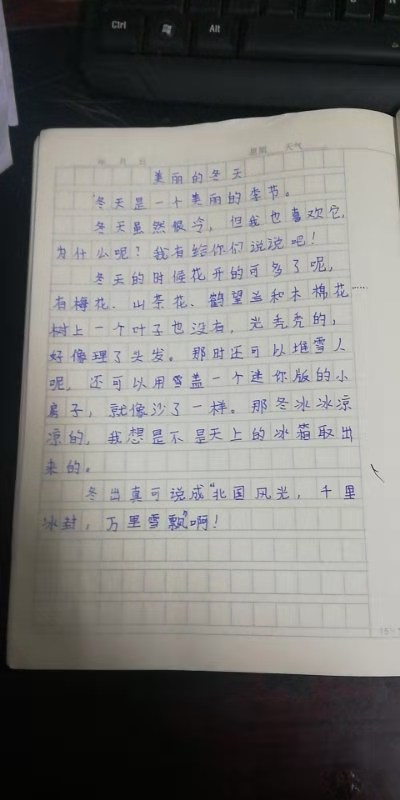 Ctrl
Alt
年 月 日 星期 天气
美丽的冬天
冬天是一个美丽的季节。
冬天虽然很冷，但我也喜欢它，
为什么呢？我有给你们说说吧！
冬天的时候花开的可多了呢，
有梅花、山茶花、鹤望兰和木棉花……
树上一个叶子也没有，光秃秃的，
好像理了头发。那时还可以堆雪人
呢，还可以用雪盖一个迷你版的小
房子，就像沙了一样。那冬冰冰凉
凉的，我想是不是天上的冰箱取出
来的。
冬出真可说成“北国风光，千里
冰封，万里雪飘”啊！